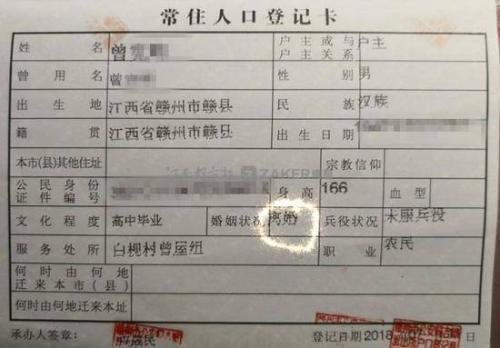 常住人口登记卡
姓名 曾 户主或与户主关系 户主
曾用名 曾 性别 男
出生地 江西省赣州市赣县 民族 汉族
籍贯 江西省赣州市赣县 出生日期
本市(县)其他住址 宗教信仰
公民身份证件编号 身高 166 血型
文化程度 高中毕业 婚姻状况 离婚 兵役状况 未服兵役
服务处所 白枧村曾屋组 职业 农民
何时由何地迁来本市(县)
何时由何地迁来本址
承办人签章: 登记日期 2018
ZAKER